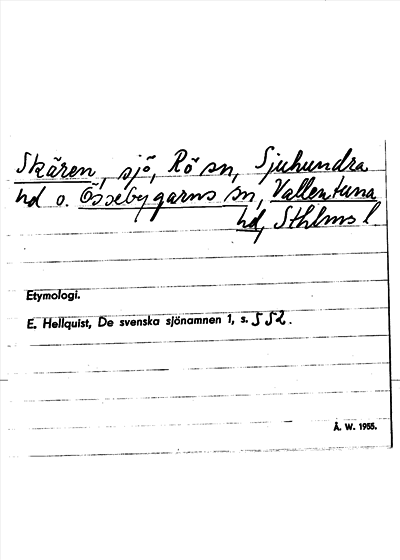 Skären, sjö, Rö sn, Sjuhundra
hd o. Össebygarns sn, Vallentuna
hd, Sthlms l
Etymologi.
E. Hellquist, De svenska sjönamnen 1, s. 552.
Å. W. 1955.